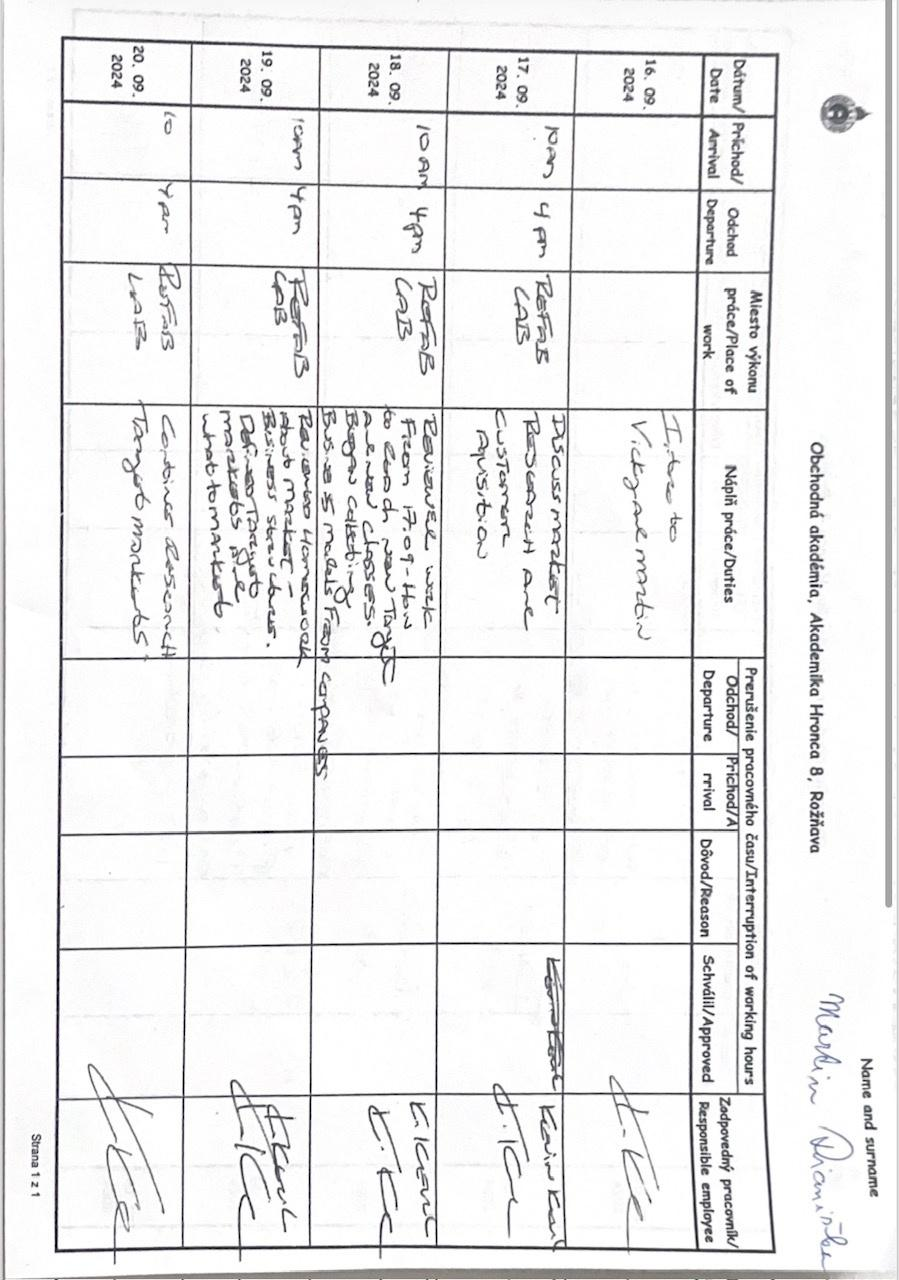 Name and surname
Obchodná akadémia, Akademika Hronca 8, Rožňava
Martin
Dátum/
Date
Príchod/
Arrival
Odchod
Departure
Miesto výkonu
práce/Place of
work
Náplň práce/Duties
Prerušenie pracovného času/Interruption of working hours
Odchod/
Departure
Príchod/A
rrival
Dôvod/Reason
Schválil/Approved
Zodpovedný pracovník/
Responsible employee
16. 09.
2024
Intro to
Vicky and Martin
17. 09.
2024
10am
4pm
REFAB
LAB
Discuss market
Research and
customer
Aquisition
18. 09.
2024
10AM
4pm
REFAB
LAB
Reviewed work
From 17.09-How
to reach new Target
and new classes.
Began collecting
Business models From companies
19. 09.
2024
10am
4pm
REFAB
LAB
Reviewed Homework
about market -
Business structures.
Defined Target
markets and
what to market.
20. 09.
2024
10
4pm
REFAB
LAB
Continue Research
Target markets
Strana 1 z 1